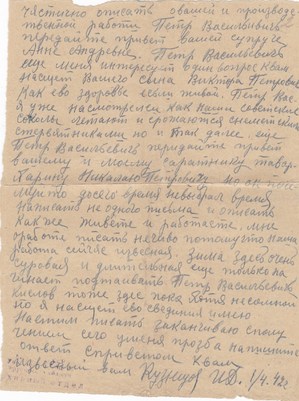 частично описать о вашей и производс
твеной работы Петр Васильевич
передайте привет вашей супруге
Анне Андревне. Петр Васильевич
еще меня интересует один вопрос к вам
насщет Вашего сына Виктора Петровича
Как ево здоровье если живой. Петр Вас.
я уже насмотрелся как наши советские
соколы летают и срожаются снеметскими
стервятниками но и так далее. еще
Петр Васильевич передайте привет
вашему и моему саратнику товар.
Харину Николаю Петровичу но он поче
му то досего время невыбрал время
написать не одного письма и описать
Как же живете и работаете. мне
о работе писать нечево потомушто наша
работа сейчас извесная. зима здесь очень
суровая и длительная еще только на
чинает подтаивать Петр Васильевич
кислов тоже здесь пока хотя несомной
но я насщет ево сведения имею
На етим писать заканчиваю сполу
чением сего уменя прозба напишите
ответ с приветом к вам
извесный вам Кузнецов И.Д. 1/4.42г.